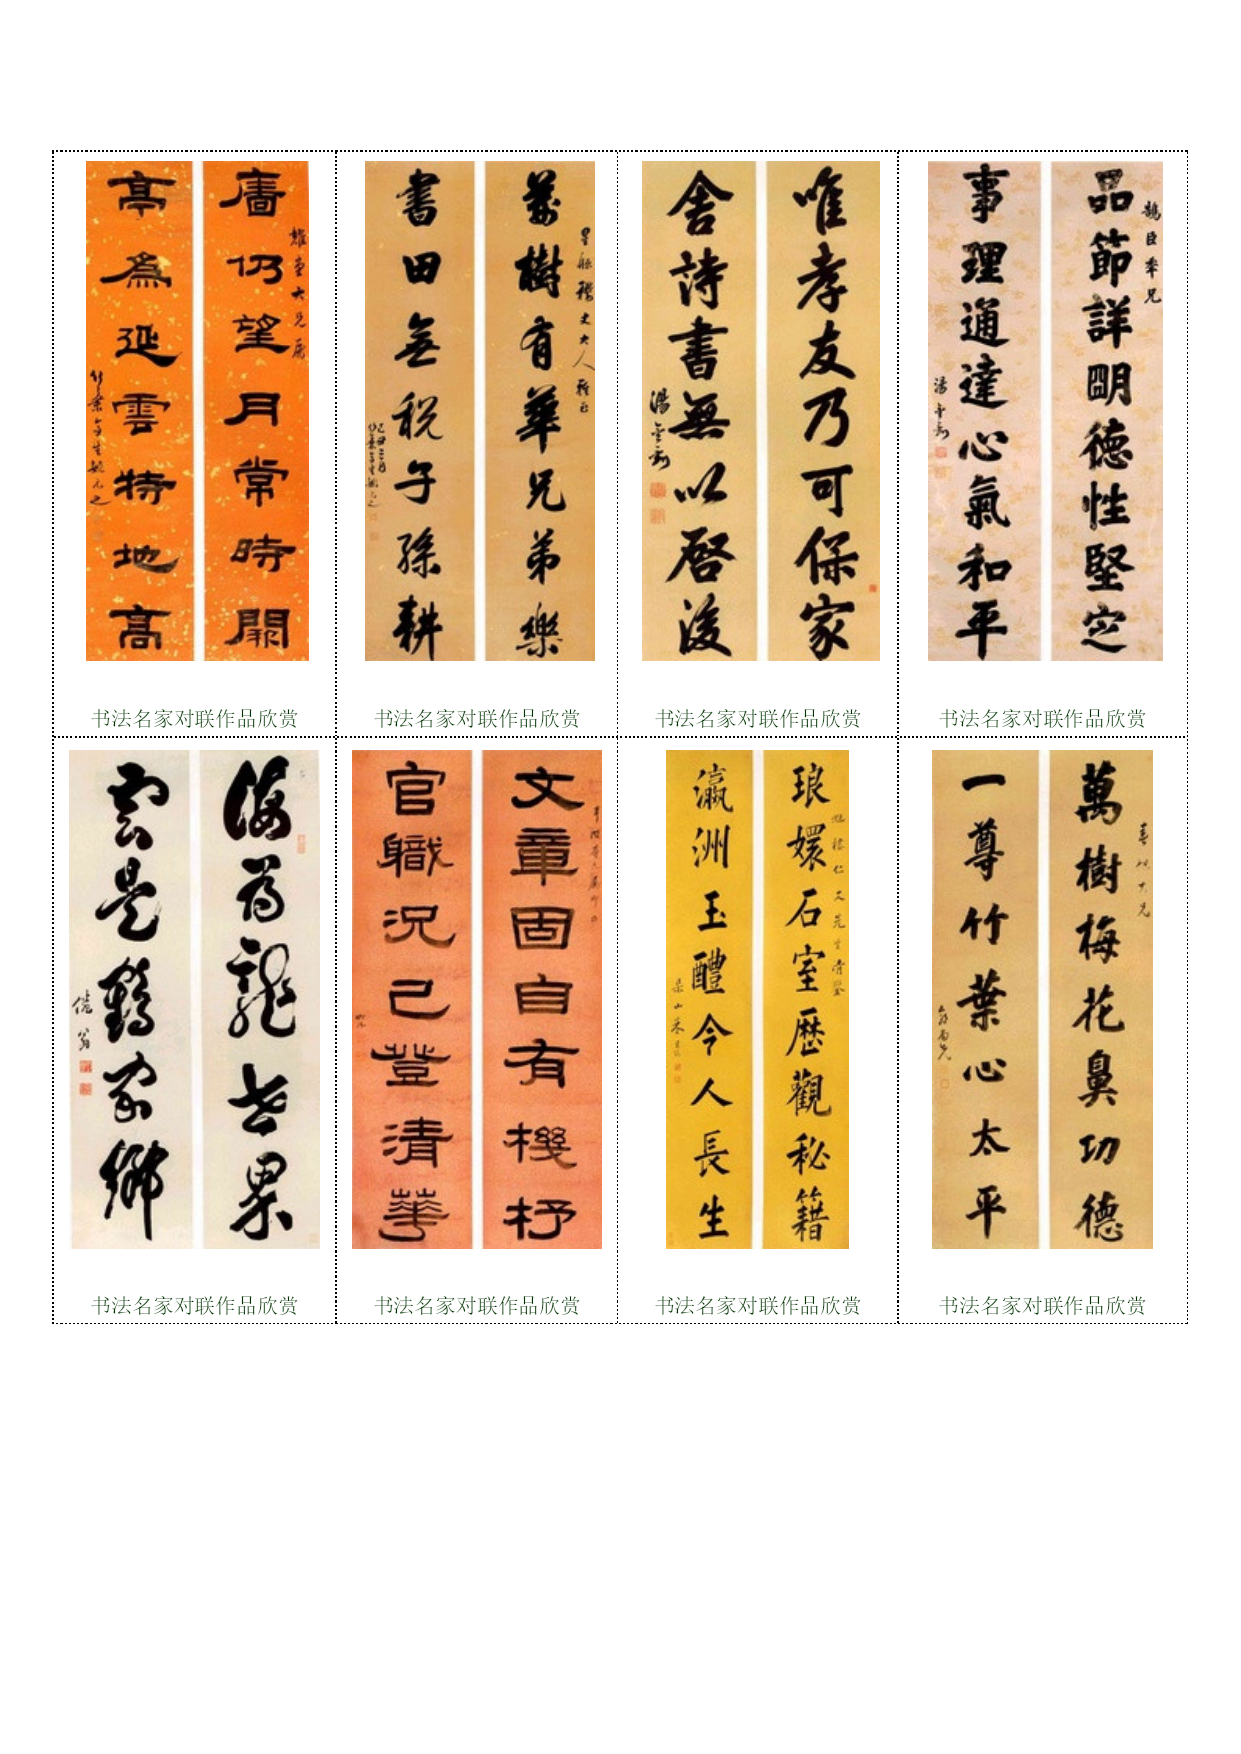 牆仍望月常時關
亭為延雲特地高
萬樹有華兄弟樂
書田無稅子孫耕
唯孝友乃可保家
舍詩書無以啓後
湯金釗
品節詳明德性堅定
鵠臣年兄
事理通達心氣和平
湯金釗
书法名家对联作品欣赏
书法名家对联作品欣赏
书法名家对联作品欣赏
书法名家对联作品欣赏
海為龍世界
雲是鶴家鄉
文章固自有機杼
官職況已登清華
琅嬛石室歷觀秘籍
瀛洲玉醴令人長生
萬樹梅花鼻功德
一尊竹葉心太平
书法名家对联作品欣赏
书法名家对联作品欣赏
书法名家对联作品欣赏
书法名家对联作品欣赏